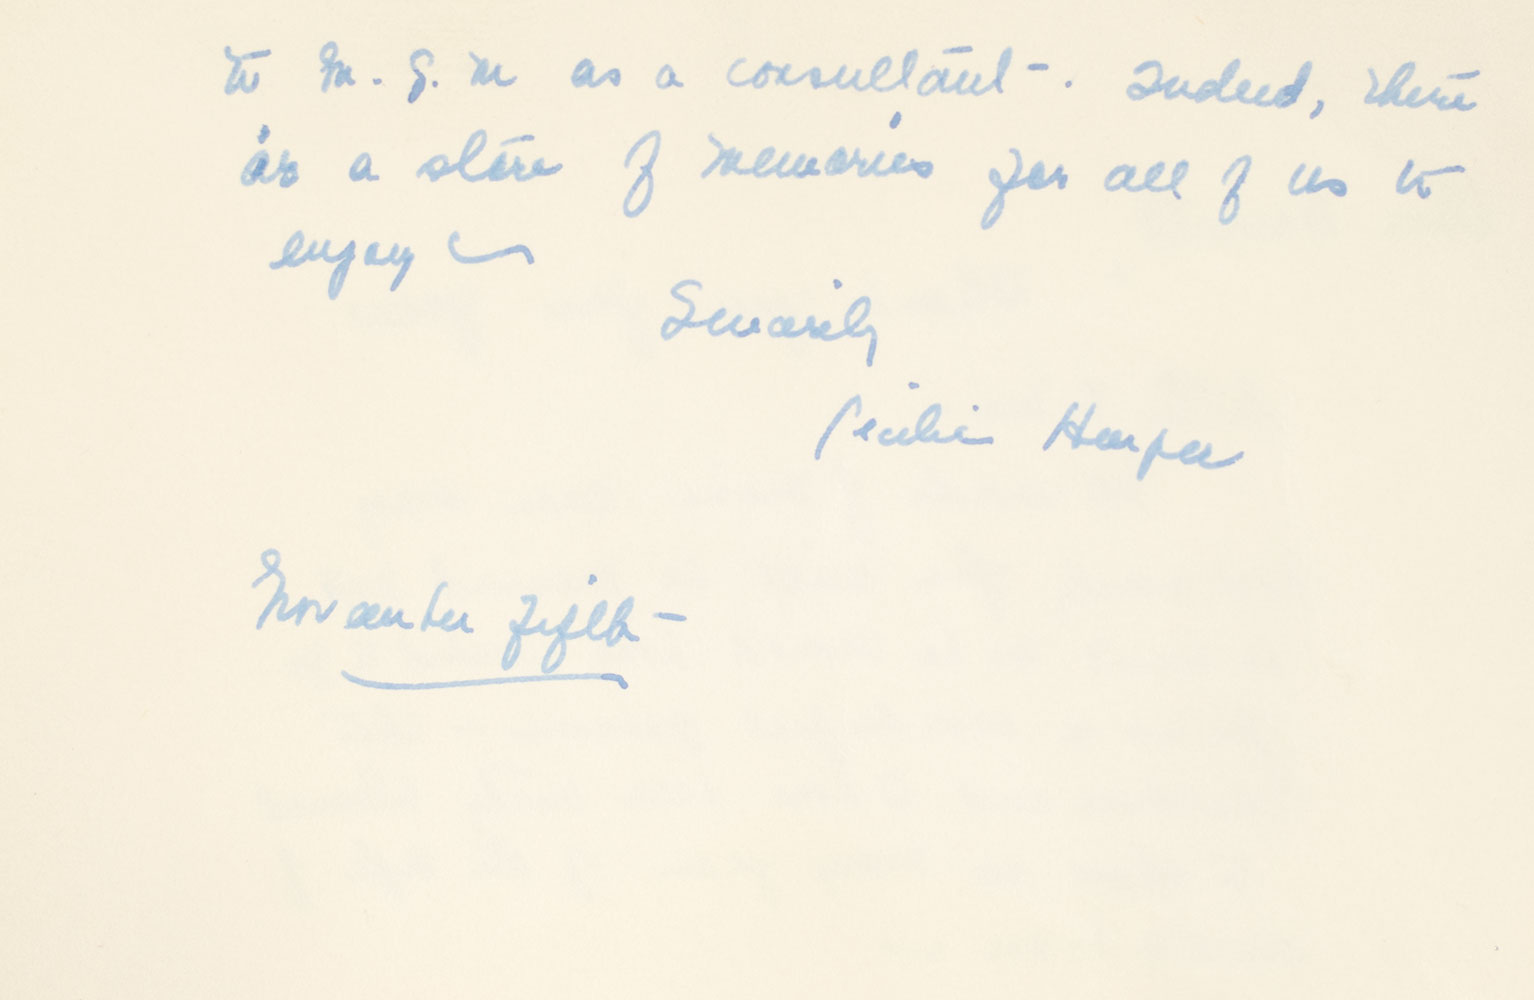 to M. G. M as a consultant -. Indeed, there
is a store of memories for all of us to
enjoy
Sincerely
Cecilie Harper
November fifth -